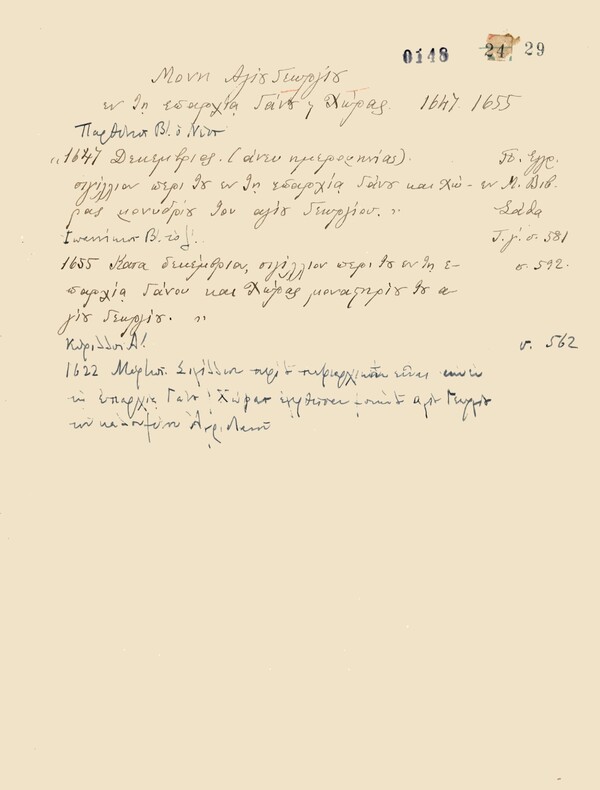 0148 24 29
Μονη Αγίου Γεωργίου
εν τη επαρχία Γάνου η Χώρας. 1647 1655
Παρθένιος Β! ὁ Νέος
"1647 Δεκεμβριος. (άνευ ημερομηνίας). Πα. Εγγρ.
σιγίλλιον περι του εν τη επαρχία Γάνου και Χώ- εν Μ. Βιβ.
ρας μονυδρίου του αγίου Γεωργίου." Σάθα
Ιωαννίκιος Β! το ζ!. Τ. γ'. σ. 581
1655 Κατα δεκέμβριον, σιγίλλιον περι του εν τη ε- σ. 592.
παρχία Γάνου και Χώρας μοναστηρίου του α
γίου Γεωργίου. "
Κύριλλος Α! σ. 562
1622 Σιγίλλιον περί τ
τη ἐπαρχία Γάνου Χώρας ἁγίου Γεωργίου
τοῦ